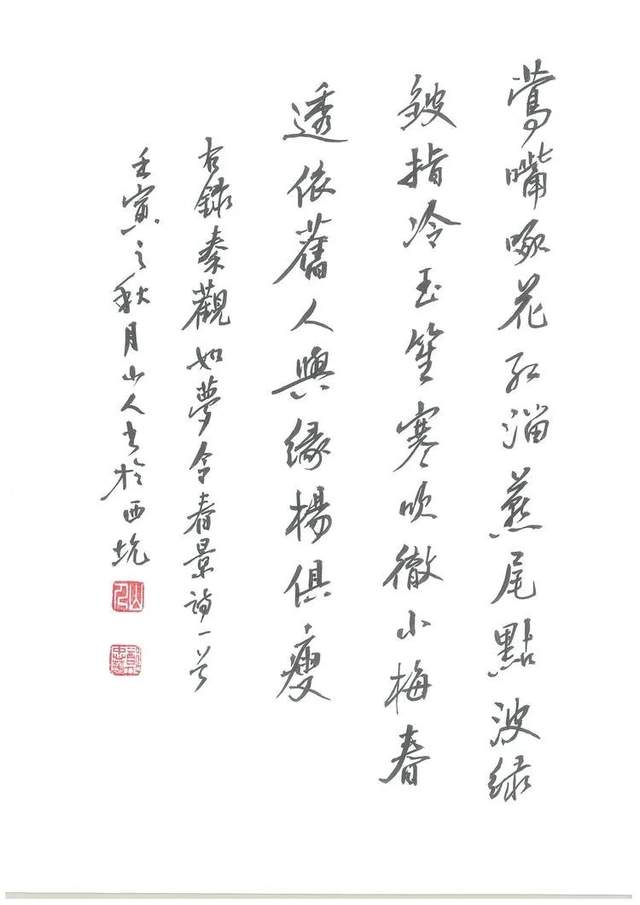 莺嘴啄花红溜燕尾點波绿
皱指冷玉笙寒吹徹小梅春
透依舊人與緣楊俱瘦
右録秦觀如夢令春景詩一首
壬寅之秋月山人书於西坑